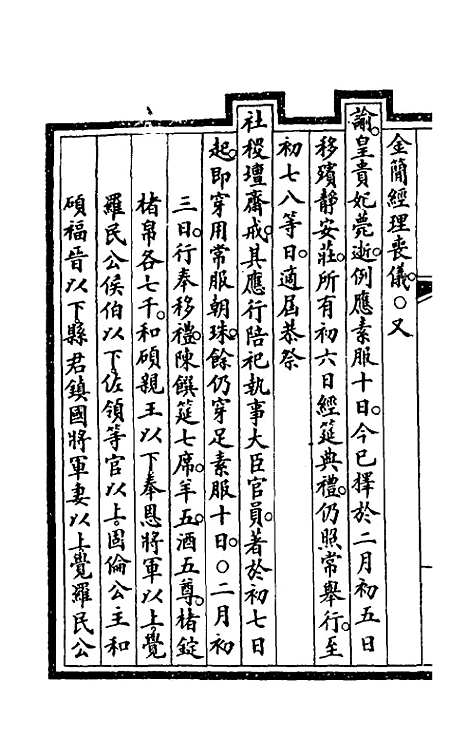 金簡經理喪儀。○又
諭。皇貴妃薨逝。例應素服十日。今已擇於二月初五日
移殯靜安莊。所有初六日經筵典禮。仍照常舉行。至
初七八等日。適屆恭祭
社稷壇齋戒。其應行陪祀執事大臣官員。著於初七日
起。即穿用常服朝珠。餘仍穿足素服十日。○二月初
三日。行奉移禮。陳饌筵七席。羊五。酒五尊。楮錠
楮帛各七千。和碩親王以下奉恩將軍以上。覺
羅民公侯伯以下佐領等官以上。固倫公主和
碩福晉以下縣君鎮國將軍妻以上。覺羅民公